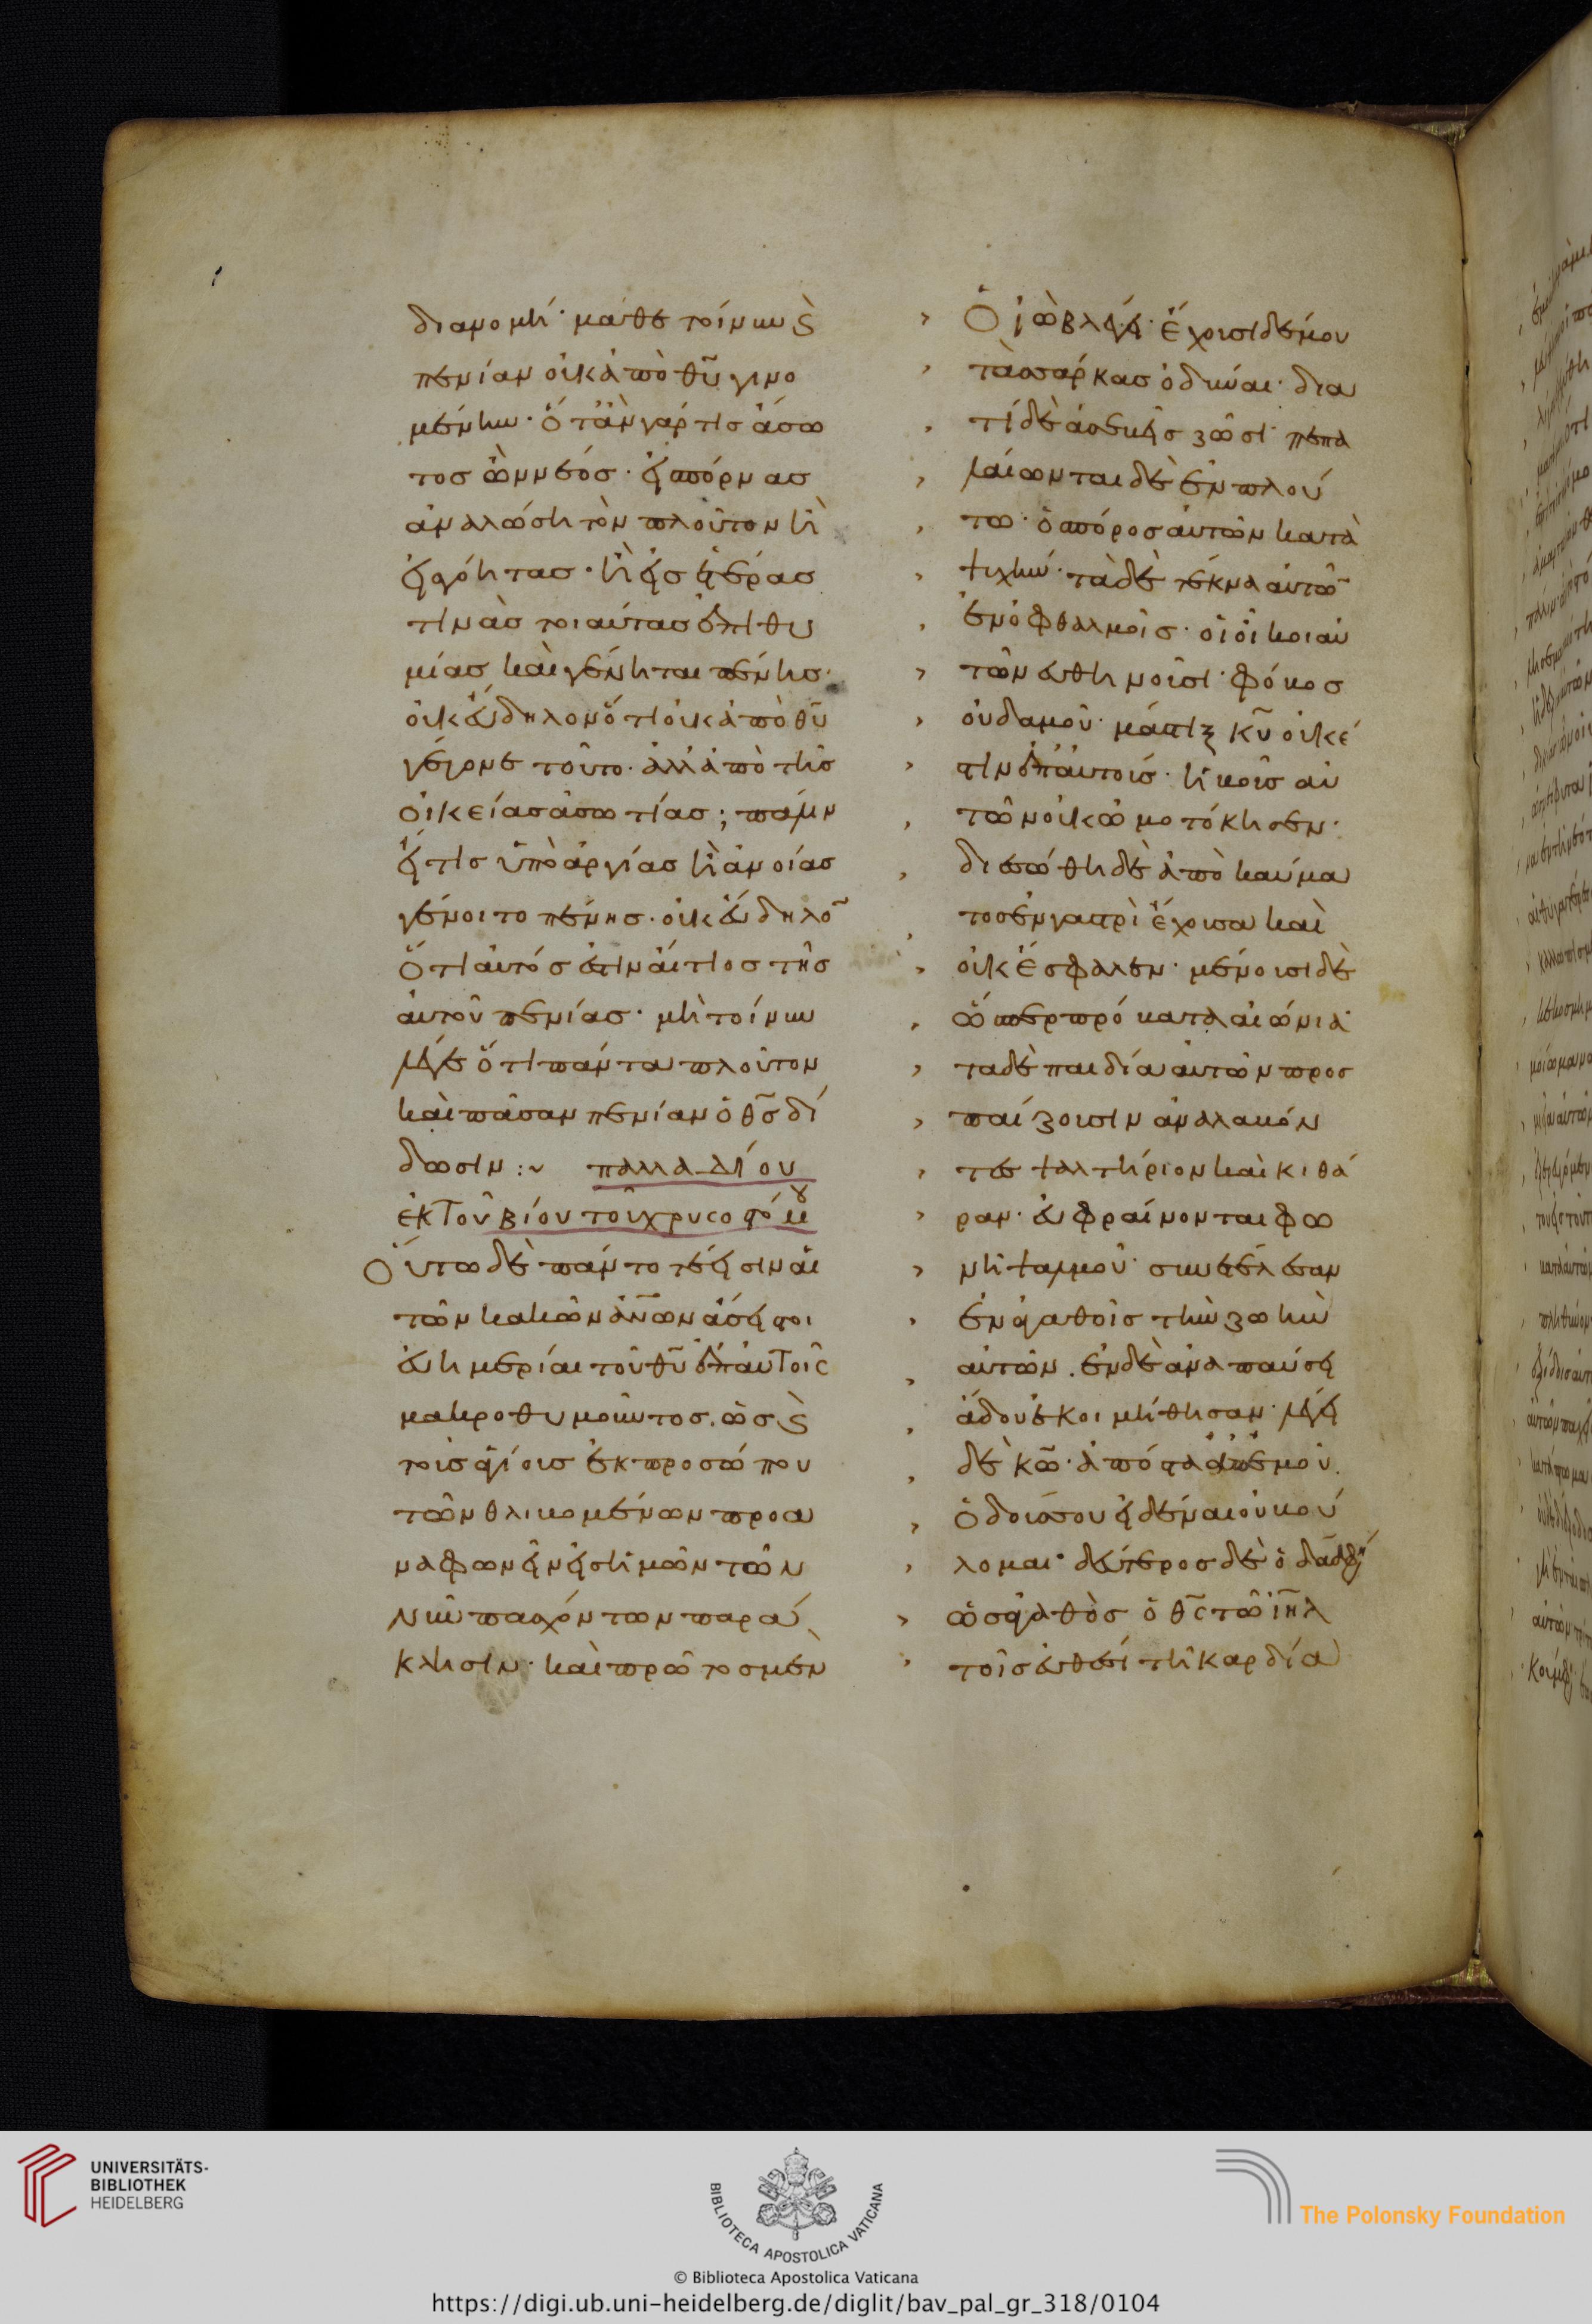 διανομή· μάθε τοίνυν καὶ
πενίαν οὐκ ἀπὸ θῦ γινο
μένην· ὅτ' ἂν γάρ τις ἄσω
τος ὢν νέος· εἰς πόρνας
ἀναλώση τὸν πλοῦτον ἢ
εἰς γόητας· ἢ εἰς ἑτέρας
τινὰς τοιαύτας ἐπιθυ
μίας καὶ γένηται πένης·
οὐκ εὔδηλον ὅτι οὐκ ἀπὸ θῦ
γέγονε τοῦτο· ἀλλ' ἀπὸ τῆς
οἰκείας ἀσωτίας; πάλιν
εἴ τις ὑπὸ ἀργίας ἢ ἀνοίας
γένοιτο πένης· οὐκ εὔδηλο̅
ὅτι αὐτός ἐστιν αἴτιος τῆς
αὐτοῦ πενίας· μὴ τοίνυν
λέγε ὅτι πάντα πλοῦτον
καὶ πᾶσαν πενίαν ὁ θ̅ς δί
δωσιν :~ παλλαδίου
ἐκ τοῦ βίου τοῦ χρυσοστόμου
Οὕτω δὲ πάντοτέ εἰσιν αἱ
τῶν κακῶν ἀν̅ων ἄσειστοι
εὐημερίαι τοῦ θῦ ἐπ' αὐτοῖς
μακροθυμοῦντος. ὡς καὶ
τοῖς ἁγίοις ἐκ προσώπου
τῶν θλιβομένων προα
ναφωνεῖν εἰς ἡμῶν τῶν
νῦν πασχόντων παρά
κλησιν· καὶ πρῶτος μὲν
Ὁ ἰὼβ λέγει· ἔχουσι δέ μου
τὰς σάρκας ὀδύναι· δια
τί δὲ ἀσεβεῖς ζῶσι· πεπα
λαίωνται δὲ ἐν πλού
τω· ὁ σπόρος αὐτῶν κατὰ
ψυχήν· τὰ δὲ τέκνα αὐτῶ̅
ἐν ὀφθαλμοῖς· οἱ οἶκοι αὐ
τῶν εὐθηνοῦσι· φόβος
οὐδαμοῦ· μάστιξ κ̅υ οὐκ ἔ
στιν ἐπ' αὐτοῖς· ἡ βοῦς αὐ
τῶν οὐκ ὠμοτόκησεν·
διεσώθη δὲ ἀπὸ καύμα
τος ἐν γαστρὶ ἔχουσα καὶ
οὐκ ἔσφαλεν· μένουσι δὲ
ὥσπερ πρόβατα αἰώνια·
τα δὲ παιδία αὐτῶν προσ
παίζουσιν ἀναλαβόν
τες ψαλτήριον καὶ κιθά
ραν· εὐφραίνονται φω
νῆ ψαλμοῦ· συνετέλεσαν
ἐν ἀγαθοῖς τὴν ζωὴν
αὐτῶν. ἐν δὲ ἀναπαύσει
ἅδου ἐκοιμήθησαν· λέγει
δὲ κ̅ω· ἀπόστα ἀπ' ἐμοῦ.
ὁδούς σου εἰδέναι οὐ βού
λομαι· δεύτερος δὲ ὁ δα̅δ
ὡς ἀγαθὸς ὁ θ̅ς τῶ ἰ̅η̅λ
τοῖς εὐθέσι τῆ καρδία
UNIVERSITÄTS-
BIBLIOTHEK
HEIDELBERG
BIBLIOTECA APOSTOLICA VATICANA
The Polonsky Foundation
© Biblioteca Apostolica Vaticana
https://digi.ub.uni-heidelberg.de/diglit/bav_pal_gr_318/0104